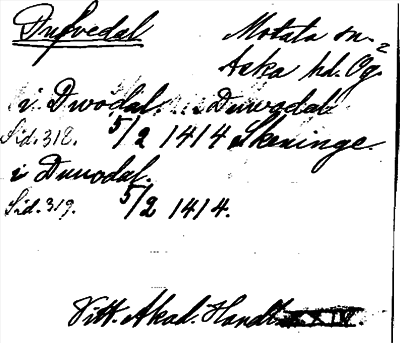 Dufvedal
Motala sn.
Aska hd. Ög.
i Dwodal ... i Duwodal
Sid. 318. 5/2 1414 Skeninge
i Duuodal.
Sid. 319. 5/2 1414.
Vitt. Akad. Handl. XXIV.